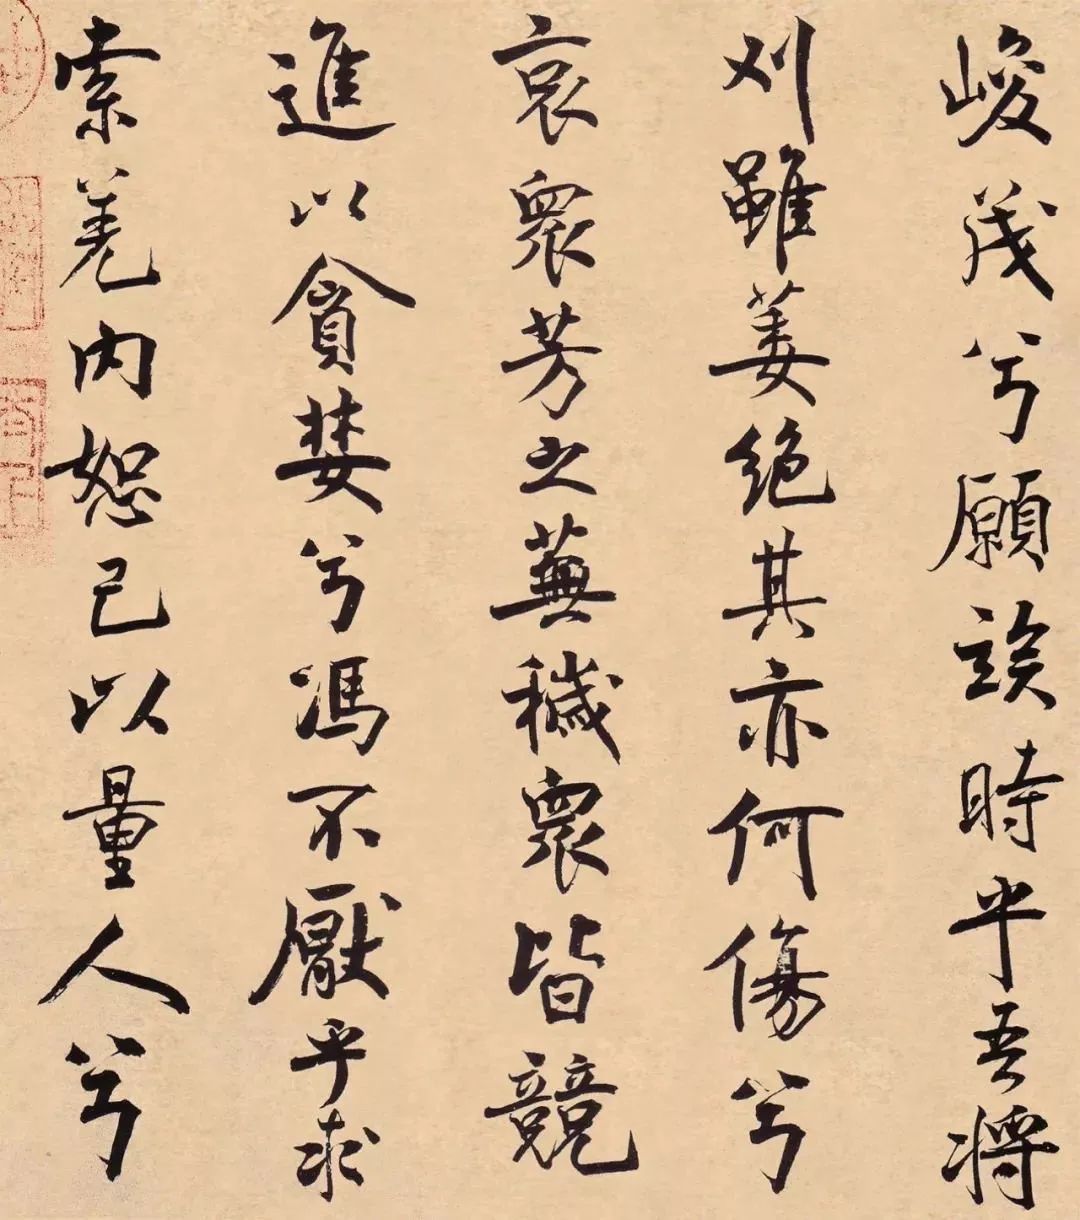 峻茂兮願竢時乎吾將
刈雖萎絶其亦何傷兮
哀眾芳之蕪穢眾皆競
進以貪婪兮馮不厭乎求
索羌内恕己以量人兮